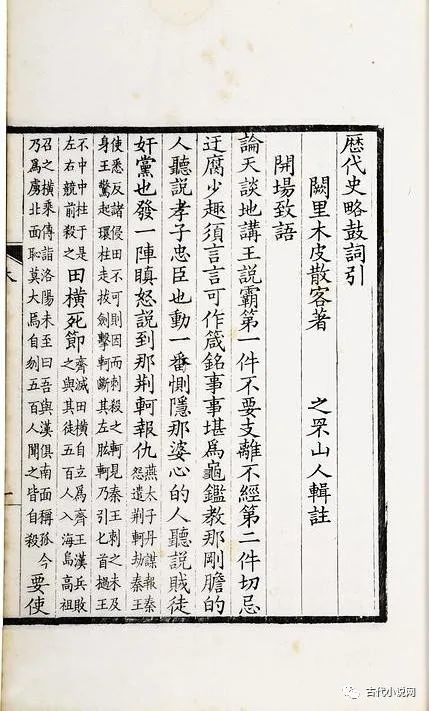 歷代史略鼓詞引
闕里木皮散客著 之罘山人輯註
開場致語
論天談地講王說霸第一件不要支離不經第二件切忌
迂腐少趣須言言可作箴銘事事堪爲龜鑑教那剛膽的
人聽說孝子忠臣也動一番惻隱那婆心的人聽說賊徒
奸黨也發一陣瞋怒說到那荆軻報仇燕太子丹謀報秦
怨遣荆軻劫秦王
使悉反諸侵田不可則因而刺殺之軻見秦王刺之未及
身王驚起環柱走拔劍擊軻斷其左肱軻乃引匕首擿王
不中中柱于是
左右競前殺之田橫死節齊滅田橫自立爲齊王漢兵敗
之與其徒五百人入海島高祖
召之橫乘傳詣洛陽未至曰吾與漢俱南面稱孤今
乃爲虜北面恥莫大焉自刎五百人聞之皆自殺要使
古代小说网